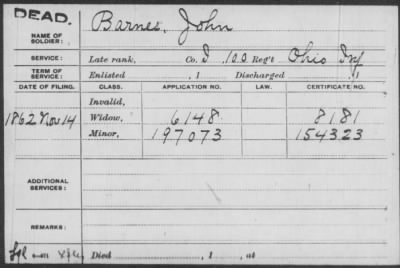 DEAD.
NAME OF SOLDIER: Barnes, John
SERVICE: Late rank, Co. I, 100 Reg't Ohio Inf
TERM OF SERVICE: Enlisted , 1 Discharged , 1
DATE OF FILING. CLASS. APPLICATION NO. LAW. CERTIFICATE NO.
Invalid,
1862 Nov 14 Widow, 6148 8181
Minor, 197073 154323
ADDITIONAL SERVICES:
REMARKS:
Died , 1 , at